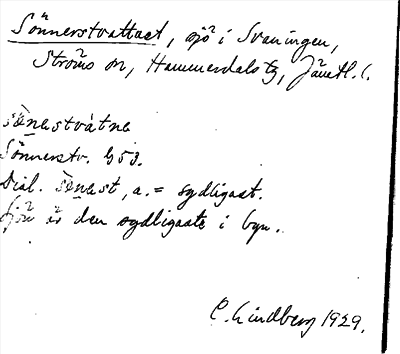 Sönnerstvattnet, sjö i Svaningen,
Ströms sn, Hammerdals tg, Jämtl. l.
sönestvátne
Sönnerstv. G 53.
Dial. sönest, a. = sydligast.
Sjön är den sydligaste i byn.
C. Lindberg 1929.